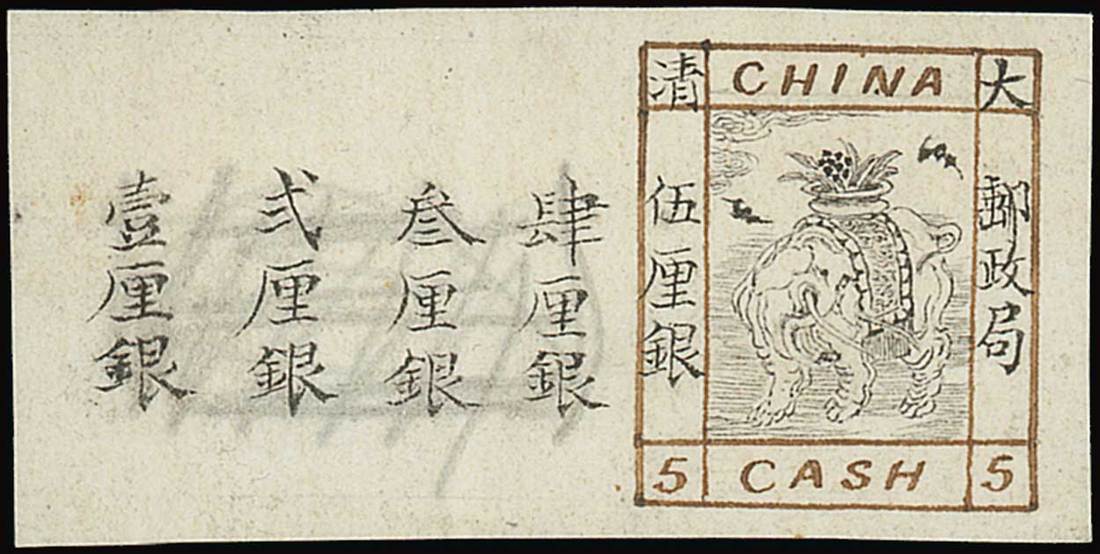 大
CHINA
清
郵政局
伍厘銀
5 CASH 5
肆厘銀
叁厘銀
弍厘銀
壹厘銀